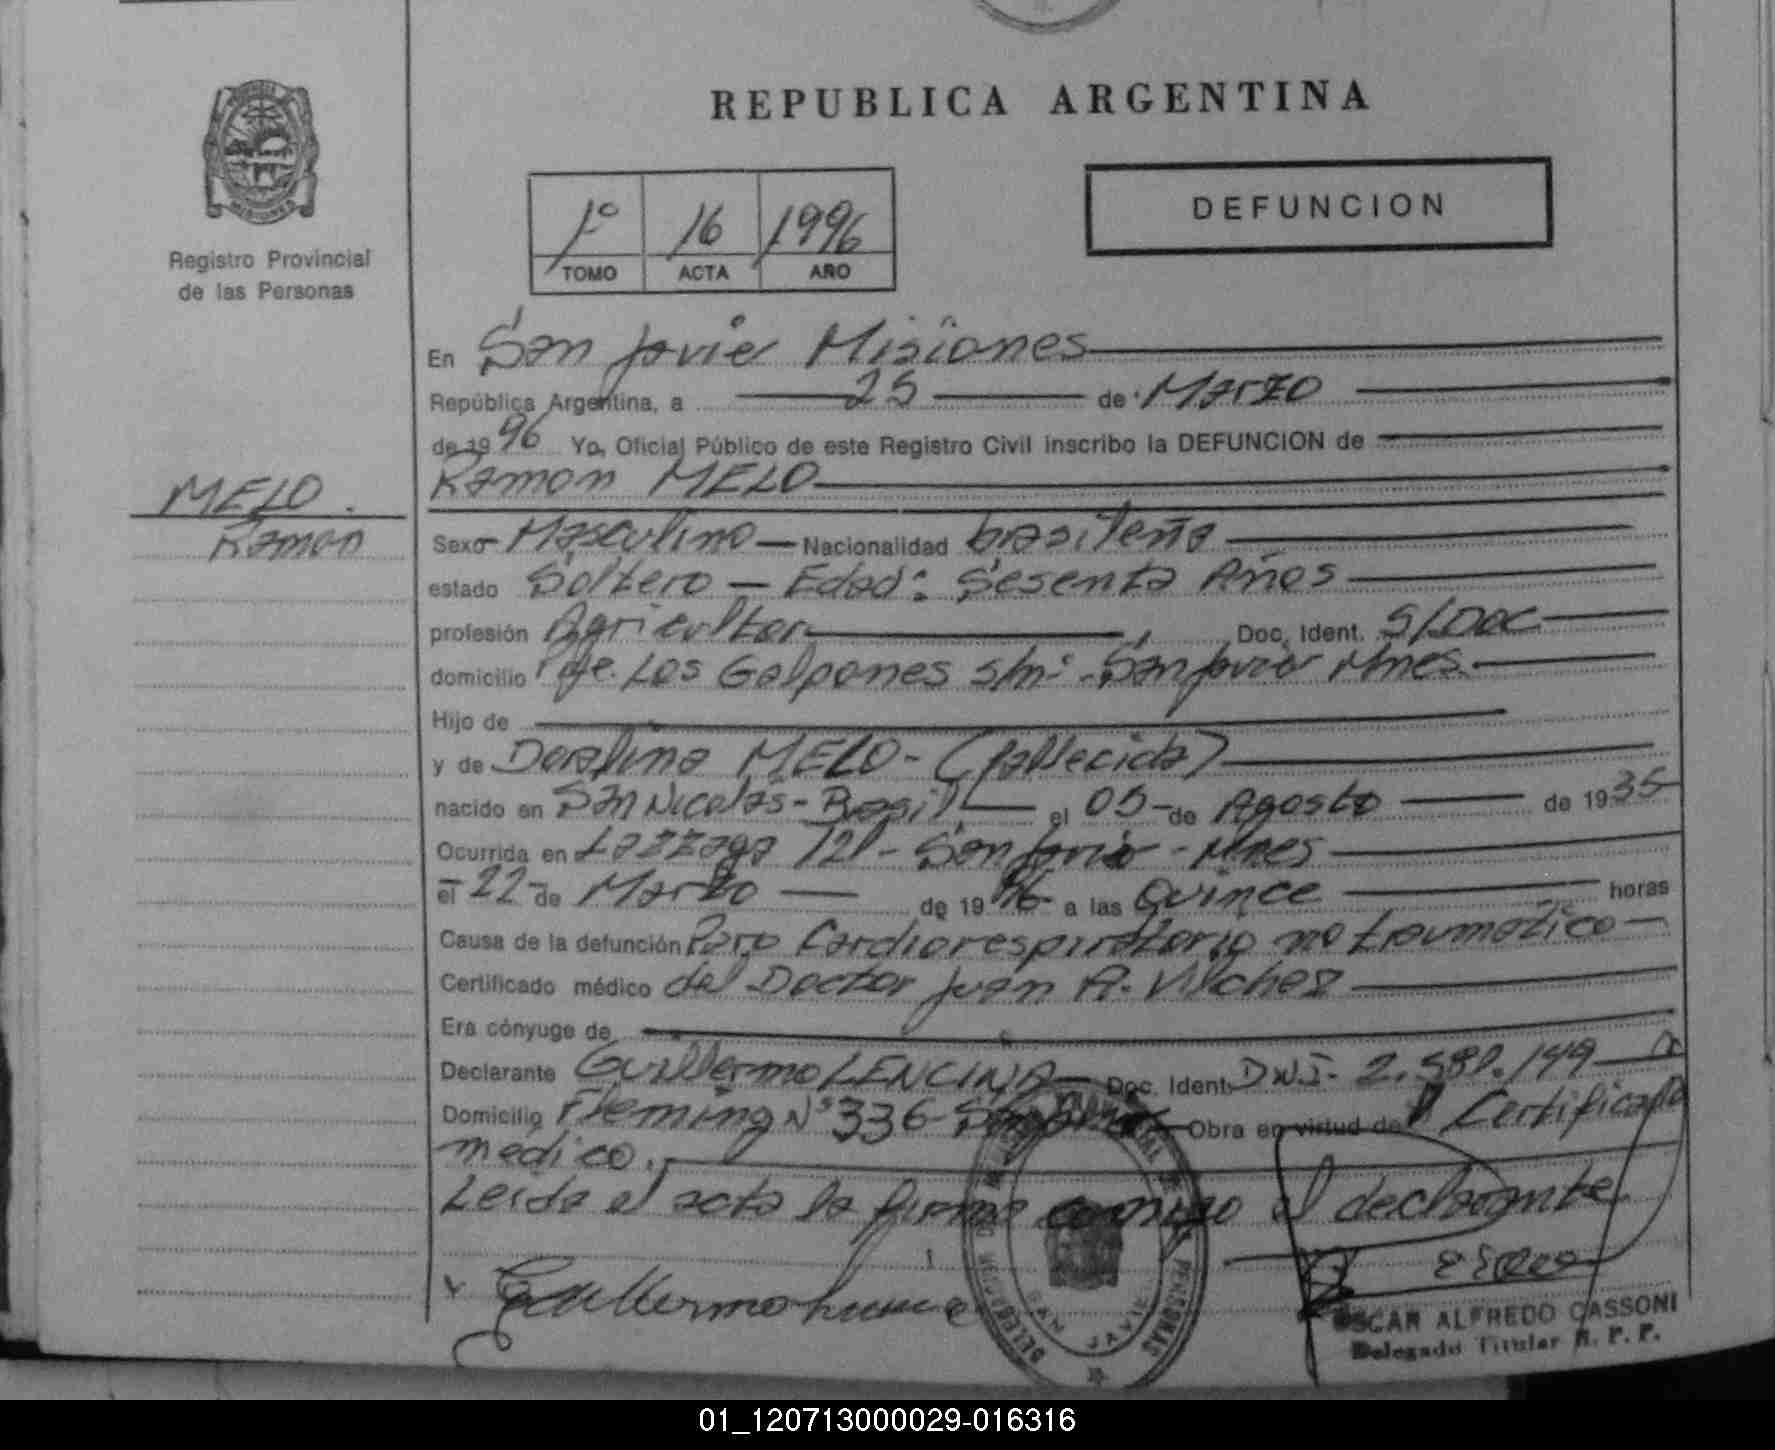 REPUBLICA ARGENTINA
DEFUNCION
1º 16 1996
TOMO ACTA AÑO
MISIONES
Registro Provincial
de las Personas
En San Javier Misiones
República Argentina, a 25 de Marzo
de 1996 Yo, Oficial Público de este Registro Civil inscribo la DEFUNCION de
Ramon MELO
MELO.
Ramon
Sexo Masculino Nacionalidad brasileña
estado Soltero - Edad: Sesenta Años
profesión Agricultor, Doc. Ident. S/Doc
domicilio Pje. Los Galpones s/nº - San Javier Mnes.
Hijo de
y de MELO - (fallecida)
nacido en San Nicolas - Brasil, el 05 de Agosto de 1935
Ocurrida en 121 - San Javier - Mnes
el 22 de Marzo de 1996 a las Quince horas
Causa de la defunción Paro Cardiorespiratorio no traumatico
Certificado médico del Doctor Juan A. Vilchez
Era cónyuge de
Declarante Guillermo LENCINA Doc. Ident. D.N.I. 2.581.149
Domicilio Fleming Nº 336 - San Javier Obra en virtud de Certificado
medico.
Leida el acta la firma conmigo el declarante
SAN JAVIER
PERSONAS
OSCAR ALFREDO CASSONI
Delegado Titular R. P. P.
01_120713000029-016316